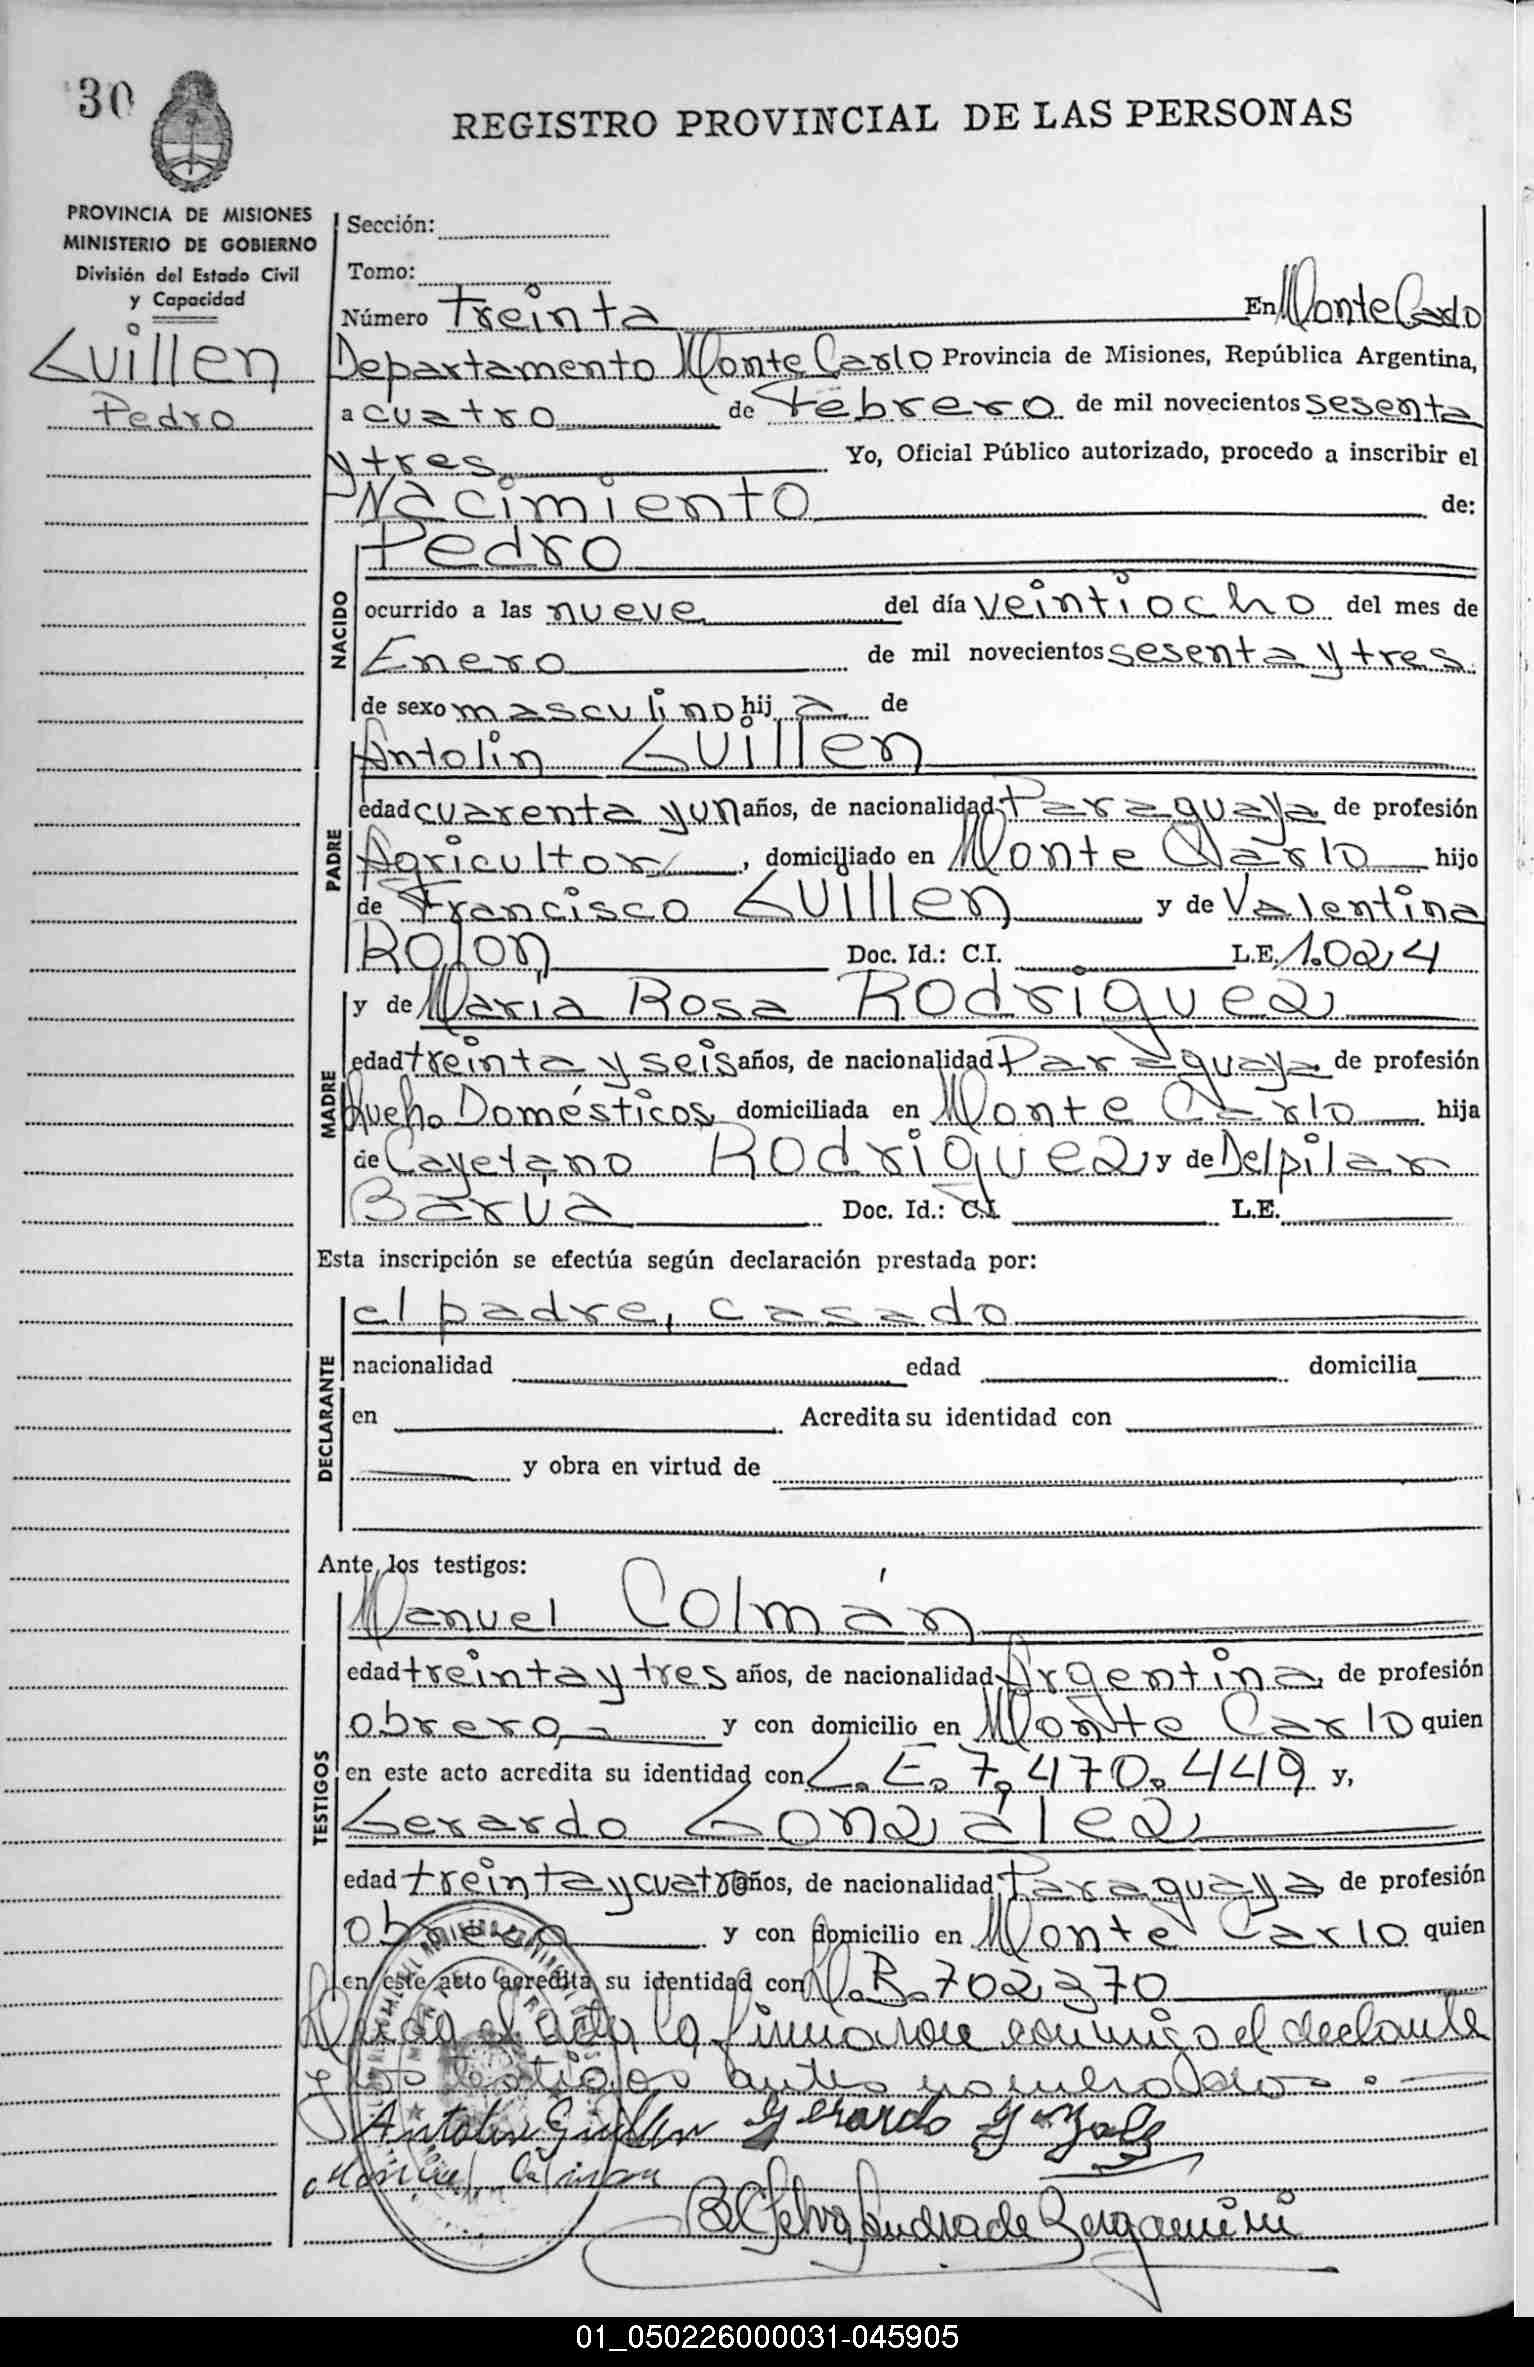 30
REGISTRO PROVINCIAL DE LAS PERSONAS
PROVINCIA DE MISIONES
MINISTERIO DE GOBIERNO
División del Estado Civil
y Capacidad
Guillen
Pedro
Sección:
Tomo:
Número Treinta En Monte Carlo
Departamento Monte Carlo Provincia de Misiones, República Argentina,
a cuatro de Febrero de mil novecientos sesenta
y tres Yo, Oficial Público autorizado, procedo a inscribir el
Nacimiento de:
Pedro
NACIDO
ocurrido a las nueve del día veintiocho del mes de
Enero de mil novecientos sesenta y tres
de sexo masculino hij a de
Antolin Guillen
PADRE
edad cuarenta y un años, de nacionalidad Paraguaya de profesión
Agricultor, domiciliado en Monte Carlo hijo
de Francisco Guillen y de Valentina
Rolon Doc. Id.: C.I. L.E. 1.024
y de Maria Rosa Rodriguez
MADRE
edad treinta y seis años, de nacionalidad Paraguaya de profesión
Queha Domésticos domiciliada en Monte Carlo hija
de Cayetano Rodriguez y de Delpilar
Barua Doc. Id.: C.I. L.E.
Esta inscripción se efectúa según declaración prestada por:
el padre, casado
DECLARANTE
nacionalidad edad domicilia
en Acredita su identidad con
y obra en virtud de
Ante los testigos:
Manuel Colmán
TESTIGOS
edad treinta y tres años, de nacionalidad Argentina de profesión
obrero y con domicilio en Monte Carlo quien
en este acto acredita su identidad con L.E. 7.470.449 y,
Gerardo Gonzalez
edad treinta y cuatro años, de nacionalidad Paraguaya de profesión
obrero y con domicilio en Monte Carlo quien
en este acto acredita su identidad con N.R. 702370
el acta, la firmaron conmigo el declarante
y los testigos antes nombrados.
Antolin Guillen Gerardo Gonzalez
Manuel Colman
Selva Andrade Bergamini
01_050226000031-045905